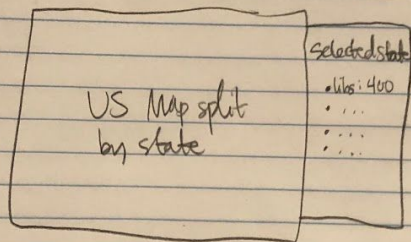 US Map split
by state
Selected state
• libs: 400
• ...
• ...
• ...